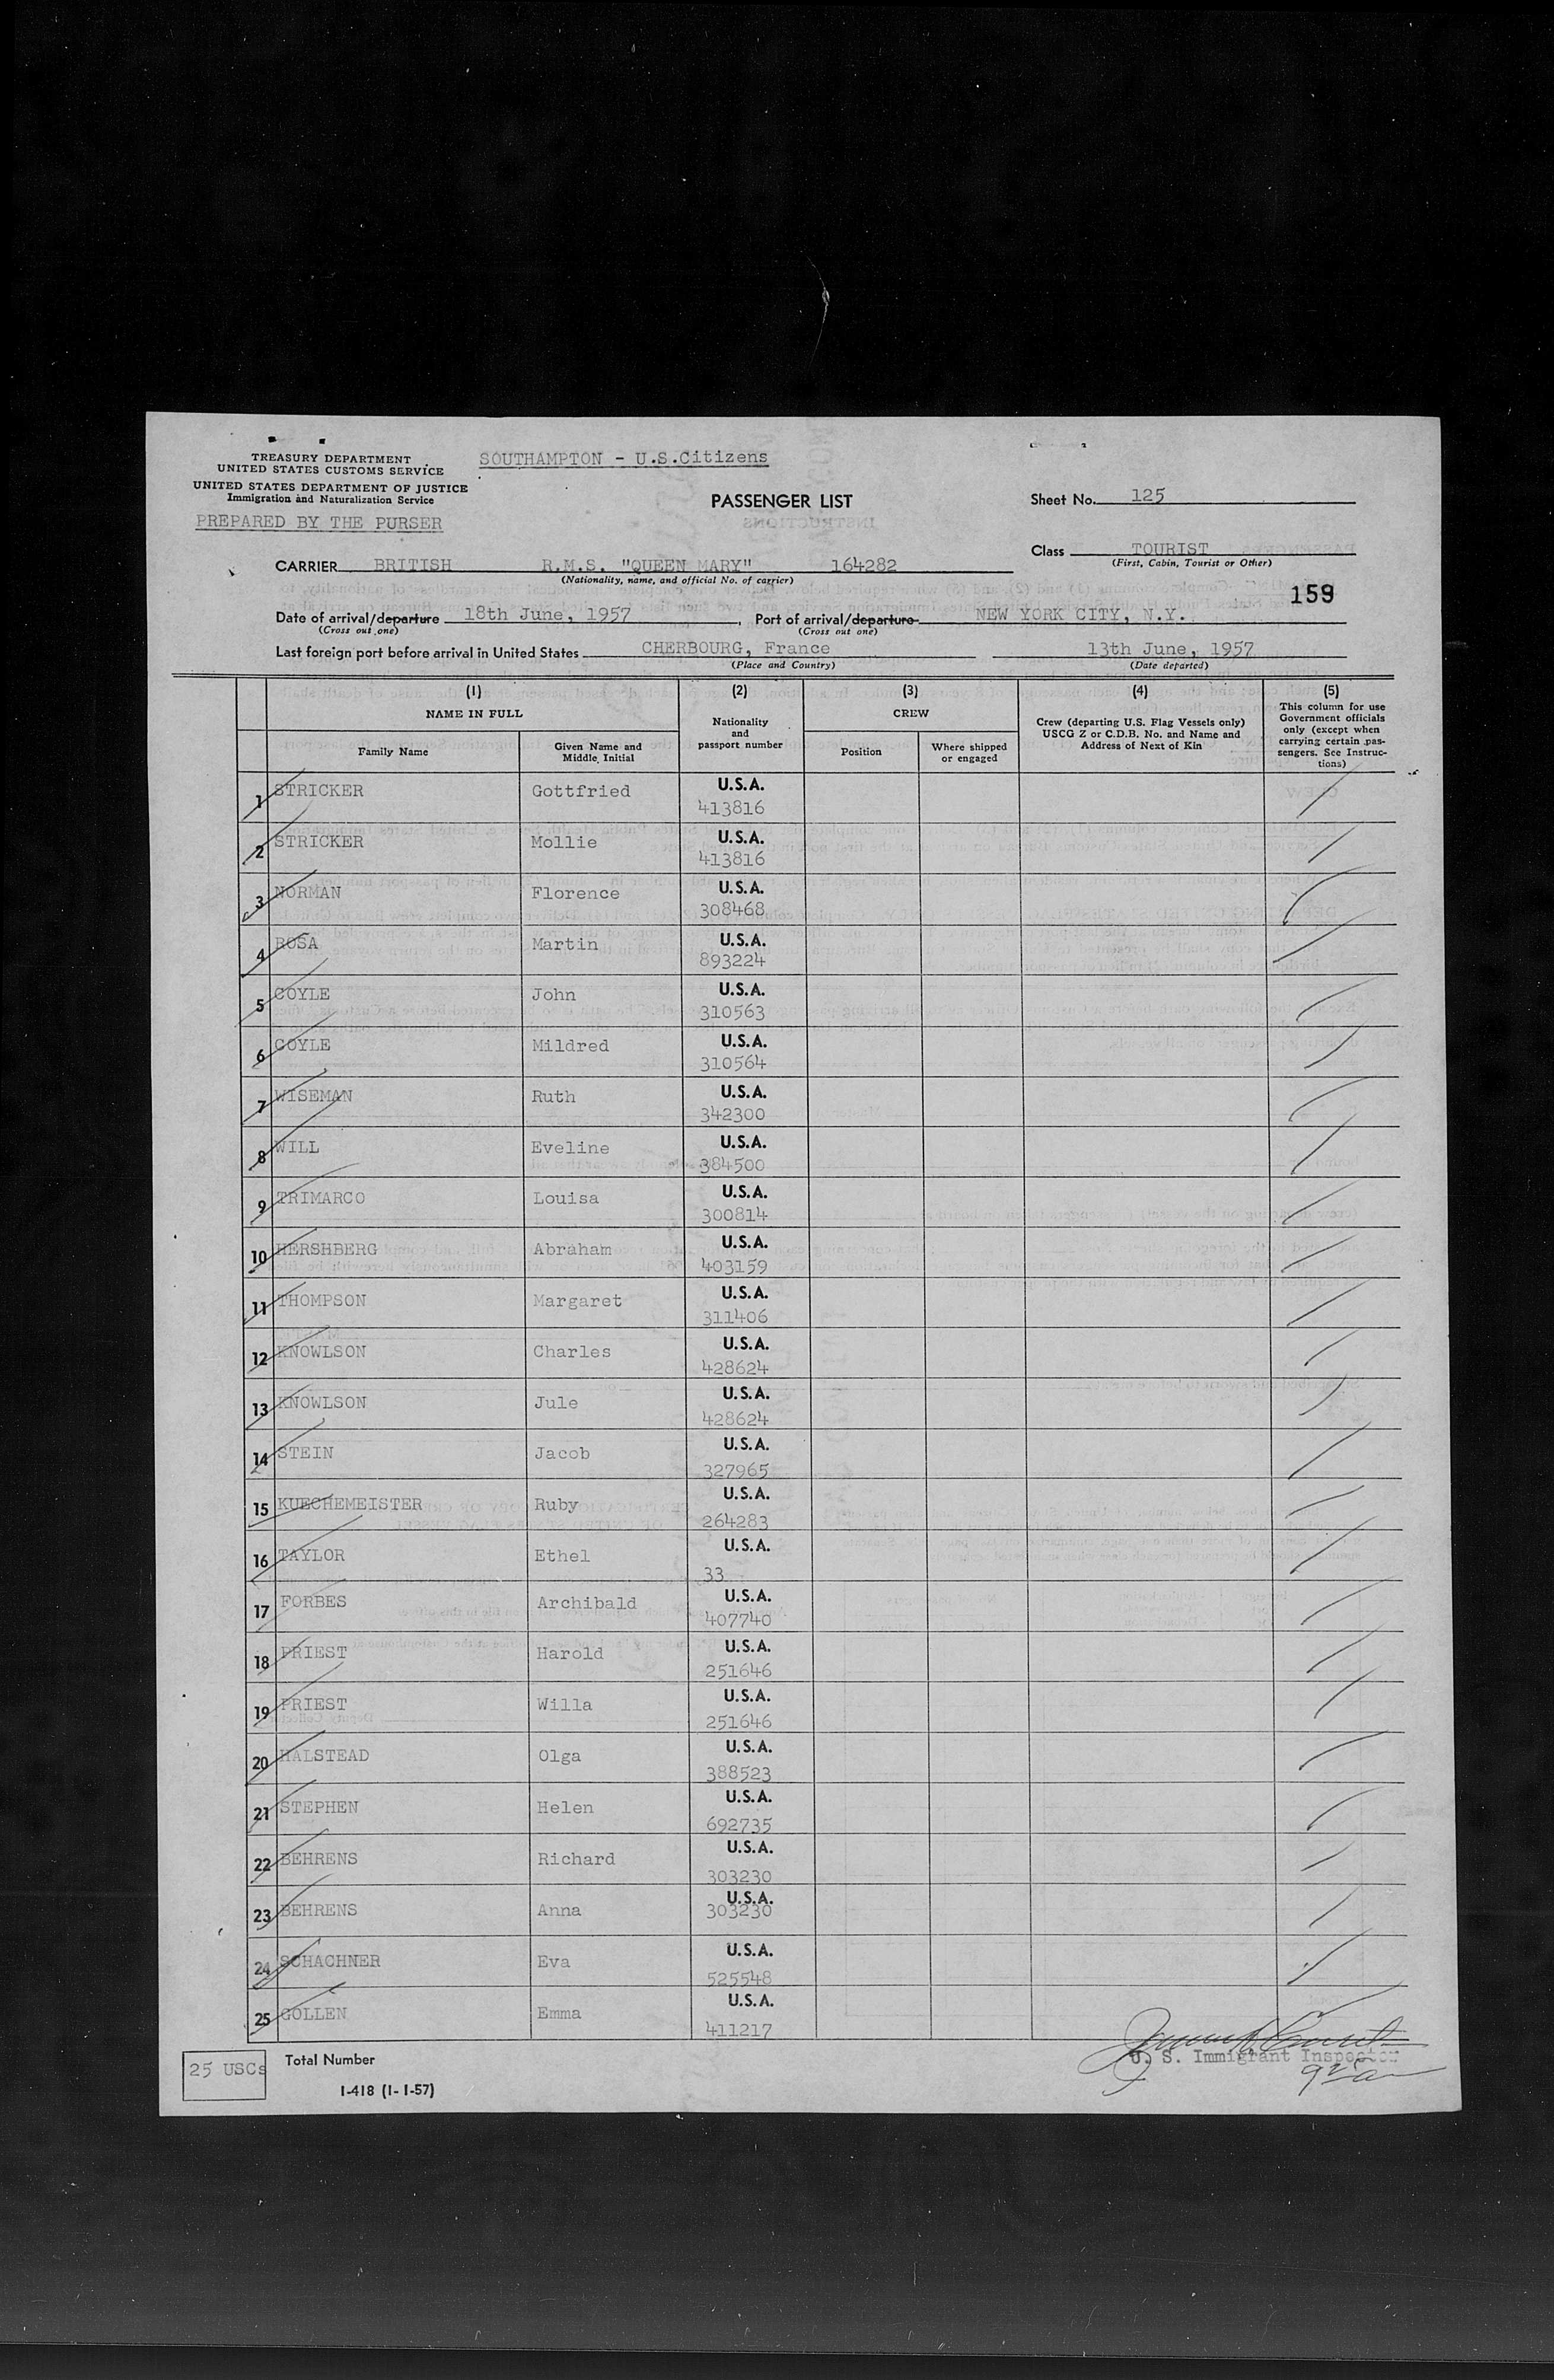 TREASURY DEPARTMENT
UNITED STATES CUSTOMS SERVICE
UNITED STATES DEPARTMENT OF JUSTICE
Immigration and Naturalization Service
PREPARED BY THE PURSER
SOUTHAMPTON - U.S.Citizens
PASSENGER LIST
Sheet No. 125
Class TOURIST
(First, Cabin, Tourist or Other)
CARRIER BRITISH R.M.S. "QUEEN MARY" 164282
(Nationality, name, and official No. of carrier)
159
Date of arrival/departure 18th June, 1957, Port of arrival/departure NEW YORK CITY, N.Y.
(Cross out one) (Cross out one)
Last foreign port before arrival in United States CHERBOURG, France 13th June, 1957
(Place and Country) (Date departed)
(1) (2) (3) (4) (5)
NAME IN FULL
Family Name
Given Name and Middle Initial
Nationality and passport number
CREW
Position
Where shipped or engaged
Crew (departing U.S. Flag Vessels only) USCG Z or C.D.B. No. and Name and Address of Next of Kin
This column for use Government officials only (except when carrying certain passengers. See Instructions)
1 STRICKER Gottfried U.S.A. 413816
2 STRICKER Mollie U.S.A. 413816
3 NORMAN Florence U.S.A. 308468
4 ROSA Martin U.S.A. 893224
5 COYLE John U.S.A. 310563
6 COYLE Mildred U.S.A. 310564
7 WISEMAN Ruth U.S.A. 342300
8 WILL Eveline U.S.A. 384500
9 TRIMARCO Louisa U.S.A. 300814
10 HERSHBERG Abraham U.S.A. 403159
11 THOMPSON Margaret U.S.A. 311406
12 KNOWLSON Charles U.S.A. 428624
13 KNOWLSON Jule U.S.A. 428624
14 STEIN Jacob U.S.A. 327965
15 KUECHEMEISTER Ruby U.S.A. 264283
16 TAYLOR Ethel U.S.A. 33
17 FORBES Archibald U.S.A. 407740
18 PRIEST Harold U.S.A. 251646
19 PRIEST Willa U.S.A. 251646
20 HALSTEAD Olga U.S.A. 388523
21 STEPHEN Helen U.S.A. 692735
22 BEHRENS Richard U.S.A. 303230
23 BEHRENS Anna U.S.A. 303230
24 SCHACHNER Eva U.S.A. 525548
25 GOLLEN Emma U.S.A. 411217
25 USCs
Total Number
U. S. Immigrant Inspector
I-418 (1-1-57)